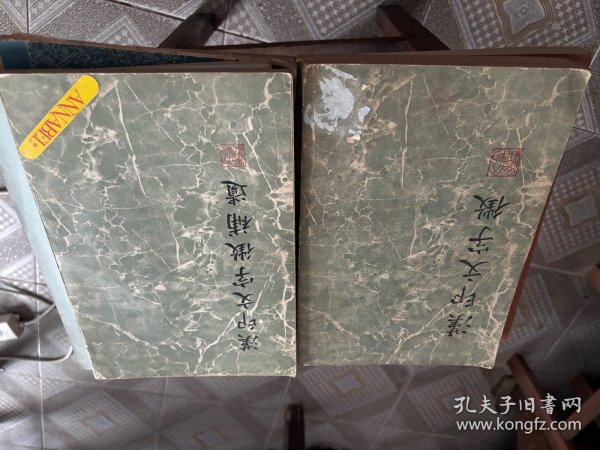 漢印文字徵補遺
漢印文字徵
ANNABEL
孔夫子旧書网
www.kongfz.com